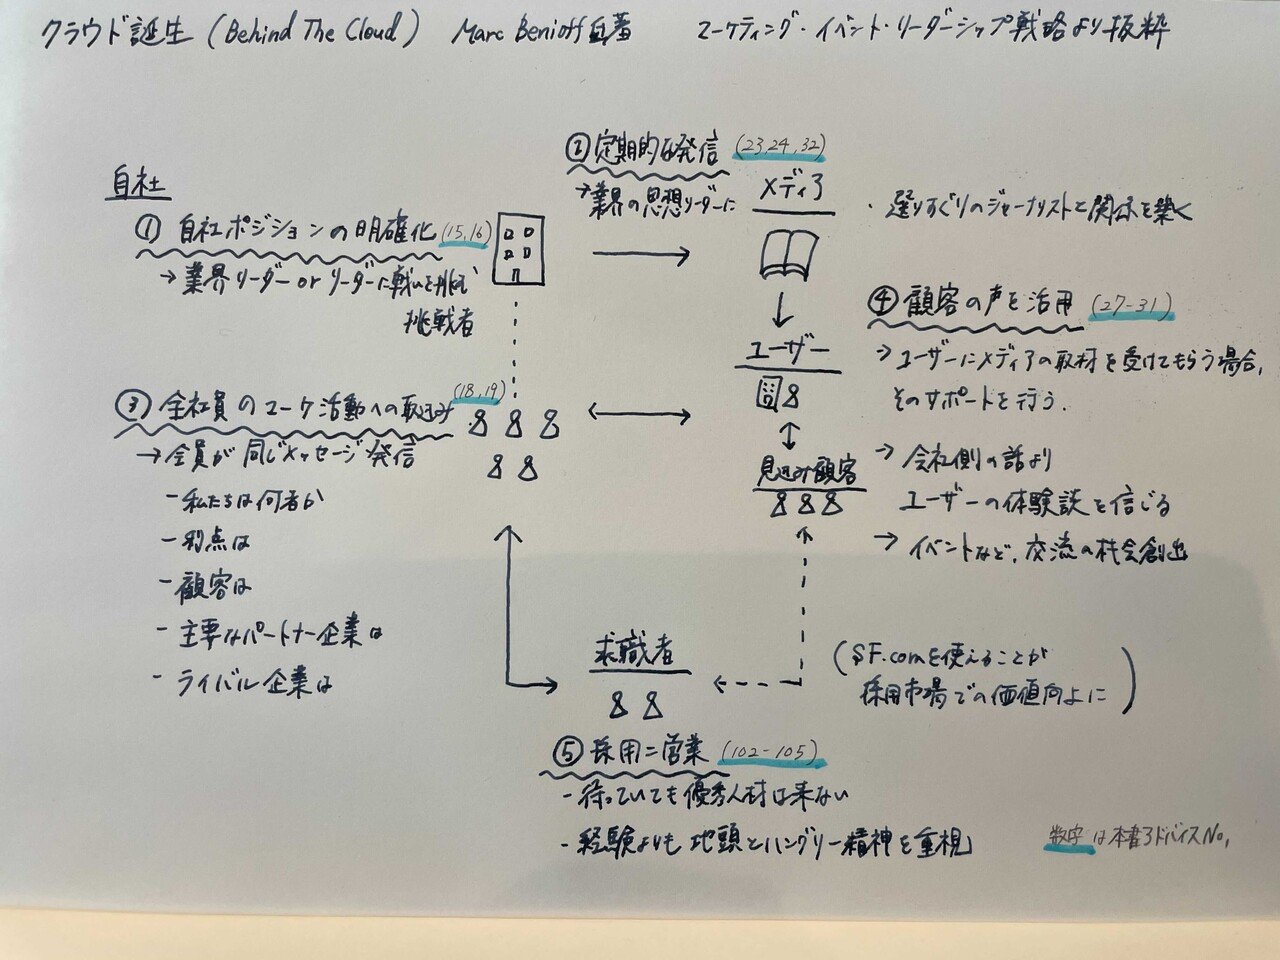 クラウド誕生 (Behind The Cloud) Marc Benioff自著 マーケティング・イベント・リーダーシップ戦略より抜粋
自社
① 自社ポジションの明確化 (15,16)
→ 業界リーダー or リーダーに戦いを挑む
挑戦者
② 定期的な発信 (23,24,32)
→ 業界の思想リーダーに
メディア
・選りすぐりのジャーナリストと関係を築く
③ 全社員のマーケ活動への取込み (18,19)
→ 全員が同じメッセージ発信
- 私たちは何者か
- 利点は
- 顧客は
- 主要なパートナー企業は
- ライバル企業は
ユーザー
見込み顧客
④ 顧客の声を活用 (27-31)
→ ユーザーにメディアの取材を受けてもらう場合、
そのサポートを行う.
→ 会社側の話より
ユーザーの体験談を信じる
→ イベントなど、交流の機会創出
求職者
(SF.comを使えることが
採用市場での価値向上に)
⑤ 採用=営業 (102-105)
- 待っていても優秀人材は来ない
- 経験よりも地頭とハングリー精神を重視
数字は本書アドバイスNo.